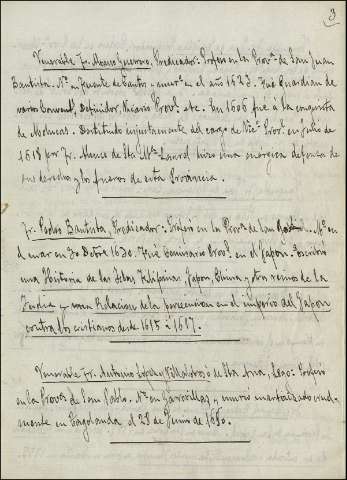 3
Venerable Fr. Alonso Guerrero, Predicador: Profesó en la Provª de San Juan
Bautista. Nº en Fuente de Cantos y murió en el año 1623. Fué Guardian de
varios Convent, Definidor, Vicario Provl etc. En 1606 fué á la conquista
de Molucas. Destituido injustamente del cargo de Vicº Provl en julio de
1618 por Fr. de Sta Mª hizo una enérgica defensa de
sus derechos y los fueros de esta Provincia.
Fr. Pedro Bautista, Predicador: Profesó en la Provª de San Nº en
el mar en 30 Octbre 1630. Fué Comisario Provl en el Japon. Escribió
una Historia de las Islas Filipinas Japon, China y otros reinos de la
India y una Relacion de la persecucion en el imperio del Japon
contra los cristianos desde 1615 á 1617.
Venerable Fr. Antonio de Sta Ana, Lego: Profesó
en la Provª de San Pablo. Nº en Garcillas y murió martirizado cruel-
mente en el 23 de Junio de 1650.